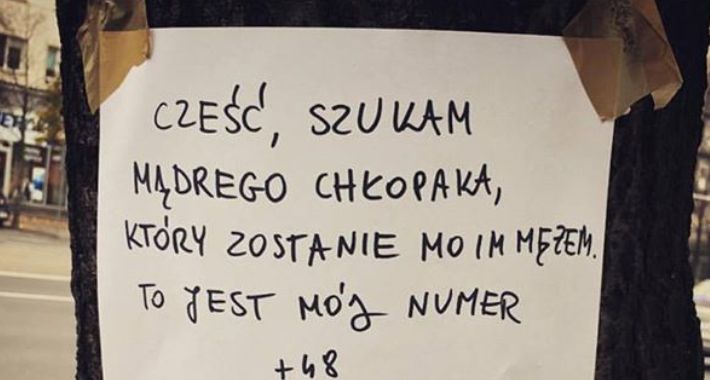 CZEŚĆ, SZUKAM
MĄDREGO CHŁOPAKA,
KTÓRY ZOSTANIE MOIM MĘŻEM.
TO JEST MÓJ NUMER
+48